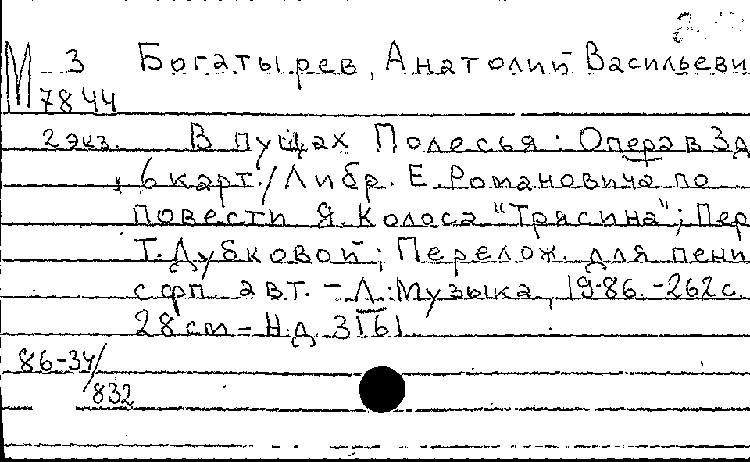 М З Богатырев, Анатолий Васильеви
7844
2 экз. В пущах Полесья: Опера в 3д
6 карт. / Либр. Е. Романовича по
повести Я. Коласа "Трясина"; Пер
Т. Дубковой; Перелож. для пени
с фп авт. - Л.: Музыка, 1986. - 262 с.
28 см - Н.д. 3161
86-34/
832